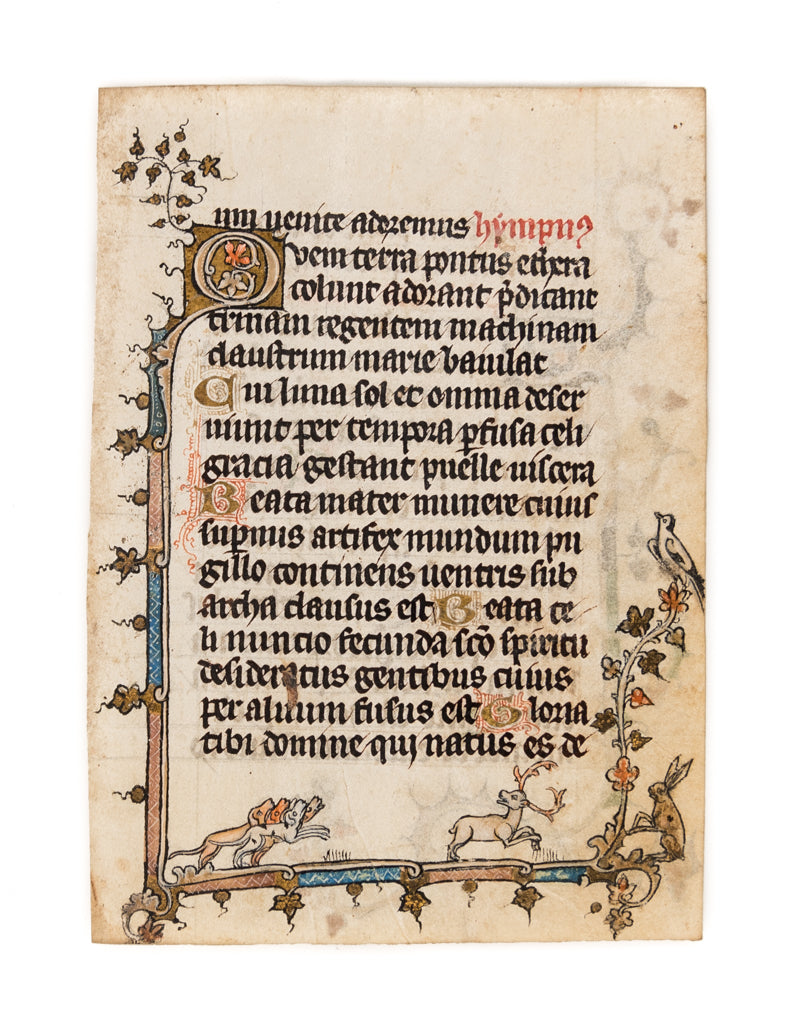 um uenite adoremus hympn9
Quem terra pontus ethera
colunt adorant pdicant
trinam regentem machinam
claustrum marie baiulat
Cui luna sol et omnia deser
uiunt per tempora pfusa celi
gracia gestant puelle uiscera
Beata mater munere cuius
supnus artifex mundum pu
gillo continens uentris sub
archa clausus est Beata ce
li nuncio fecunda sco spiritu
desideratus gentibus cuius
per aluum fusus est Gloria
tibi domine qui natus es de